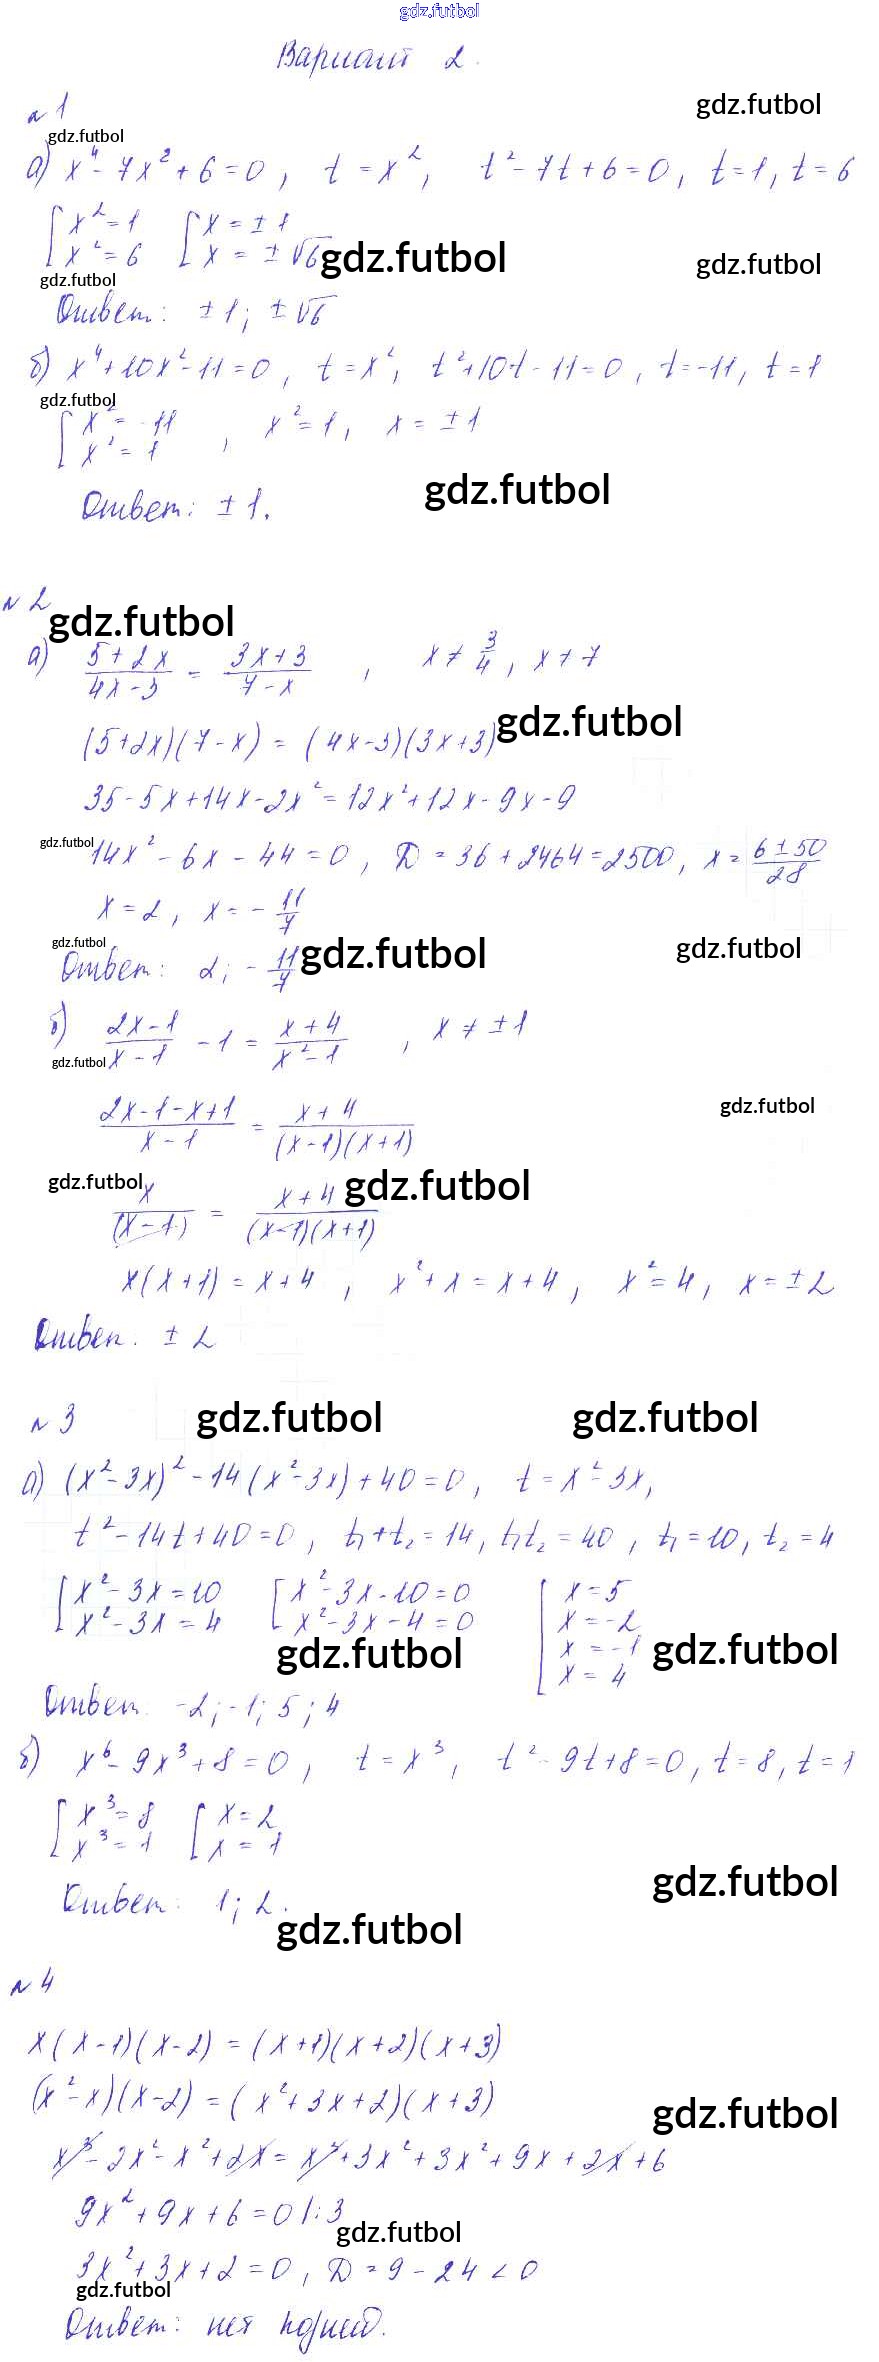 gdz.futbol
Вариант 2.
№1
gdz.futbol
gdz.futbol
а) x⁴ - 7x² + 6 = 0, t = x², t² - 7t + 6 = 0, t = 1, t = 6
[x² = 1 [x = ± 1
[x² = 6 [x = ± √6
gdz.futbol
gdz.futbol
gdz.futbol
Ответ: ± 1; ± √6
б) x⁴ + 10x² - 11 = 0, t = x², t² + 10t - 11 = 0, t = -11, t = 1
gdz.futbol
[x² = -11
[x² = 1 , x² = 1, x = ± 1
Ответ: ± 1.
gdz.futbol
№2
gdz.futbol
а) (5 + 2x)/(4x - 3) = (3x + 3)/(7 - x) , x ≠ 3/4, x ≠ 7
(5 + 2x)(7 - x) = (4x - 3)(3x + 3)
gdz.futbol
35 - 5x + 14x - 2x² = 12x² + 12x - 9x - 9
gdz.futbol
14x² - 6x - 44 = 0, D = 36 + 2464 = 2500, x = (6 ± 50)/28
x = 2, x = - 11/7
gdz.futbol
gdz.futbol
gdz.futbol
Ответ: 2; - 11/7
б) (2x - 1)/(x - 1) - 1 = (x + 4)/(x² - 1) , x ≠ ± 1
gdz.futbol
(2x - 1 - x + 1)/(x - 1) = (x + 4)/((x - 1)(x + 1))
gdz.futbol
gdz.futbol
gdz.futbol
x/(x - 1) = (x + 4)/((x - 1)(x + 1))
x(x + 1) = x + 4, x² + x = x + 4, x² = 4, x = ± 2
Ответ. ± 2
№3
gdz.futbol
gdz.futbol
а) (x² - 3x)² - 14(x² - 3x) + 40 = 0, t = x² - 3x,
t² - 14t + 40 = 0, t₁ + t₂ = 14, t₁t₂ = 40, t₁ = 10, t₂ = 4
[x² - 3x = 10 [x² - 3x - 10 = 0 [x = 5
[x² - 3x = 4 [x² - 3x - 4 = 0 [x = -2
[x = -1
[x = 4
gdz.futbol
gdz.futbol
Ответ: -2; -1; 5; 4
б) x⁶ - 9x³ + 8 = 0, t = x³, t² - 9t + 8 = 0, t = 8, t = 1
[x³ = 8 [x = 2
[x³ = 1 [x = 1
gdz.futbol
Ответ: 1; 2.
gdz.futbol
№4
x(x - 1)(x - 2) = (x + 1)(x + 2)(x + 3)
(x² - x)(x - 2) = (x² + 3x + 2)(x + 3)
gdz.futbol
x³ - 2x² - x² + 2x = x³ + 3x² + 3x² + 9x + 2x + 6
9x² + 9x + 6 = 0 |:3
gdz.futbol
3x² + 3x + 2 = 0, D = 9 - 24 < 0
gdz.futbol
Ответ: нет корней.